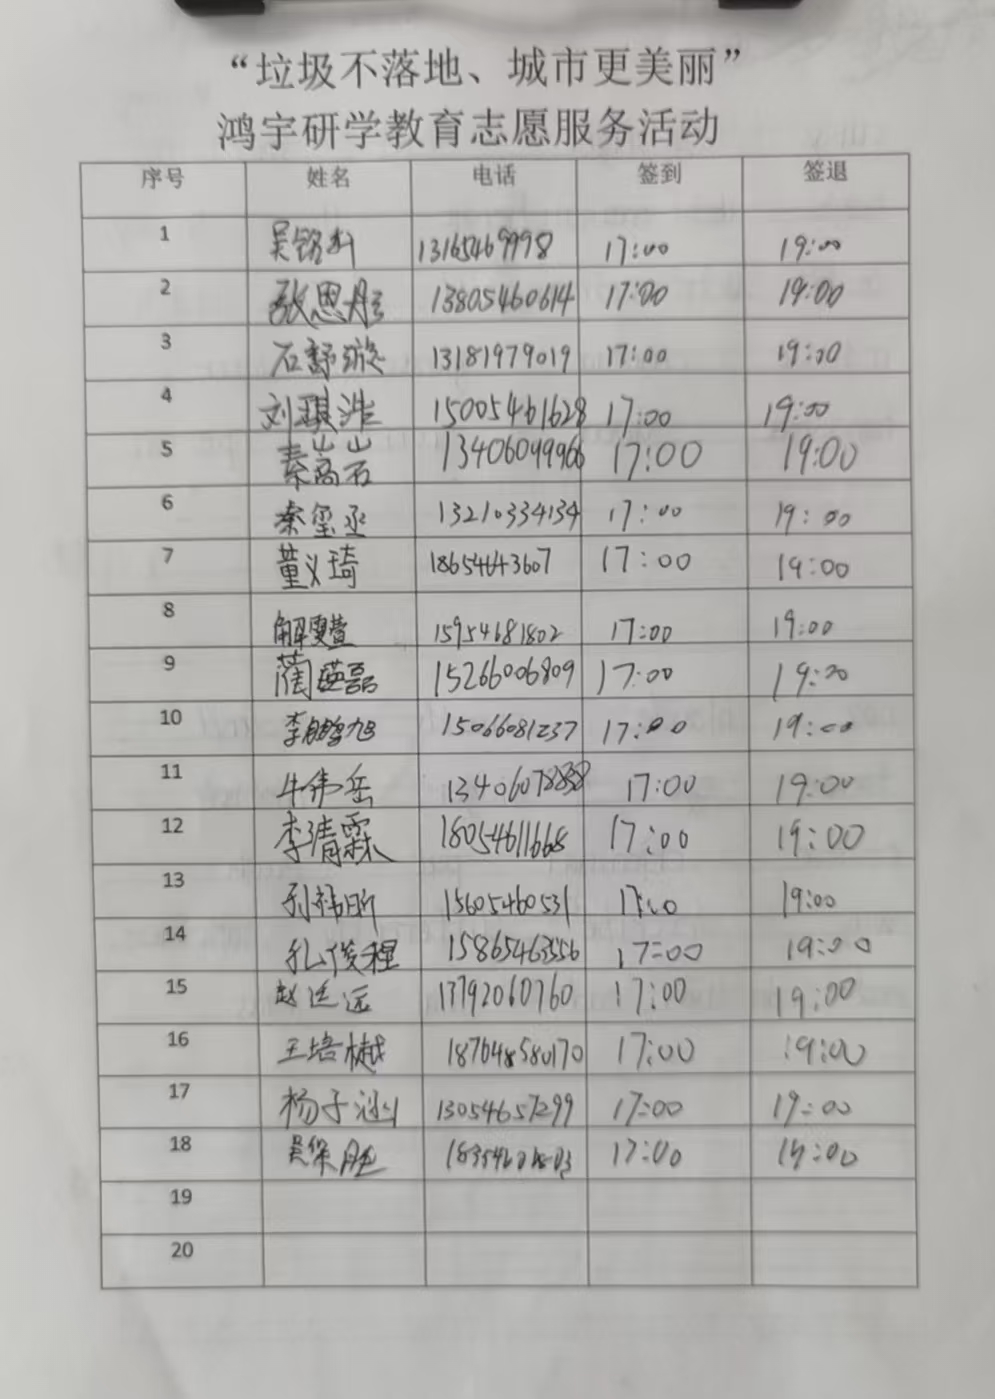 “垃圾不落地、城市更美丽”
鸿宇研学教育志愿服务活动
序号 姓名 电话 签到 签退
1 吴铭 13165469998 17:00 19:00
2 张思彤 13805460614 17:00 19:00
3 石舒璇 13181979019 17:00 19:00
4 刘琪浩 15005461628 17:00 19:00
5 秦嵩岩 13406099966 17:00 19:00
6 秦玺丞 13210334134 17:00 19:00
7 董义琦 18654643607 17:00 19:00
8 解雯萱 15954681802 17:00 19:00
9 蔺瑛磊 15266006809 17:00 19:00
10 李鹏旭 15066081237 17:00 19:00
11 牛伟岳 17:00 19:00
12 李清霖 18054611668 17:00 19:00
13 孙祎昕 15605460531 17:00 19:00
14 孔俊程 15865463556 17:00 19:00
15 赵廷远 13792060760 17:00 19:00
16 王培樾 187648580170 17:00 19:00
17 杨子涵 13054657299 17:00 19:00
18 吴保胜 17:00 19:00
19
20